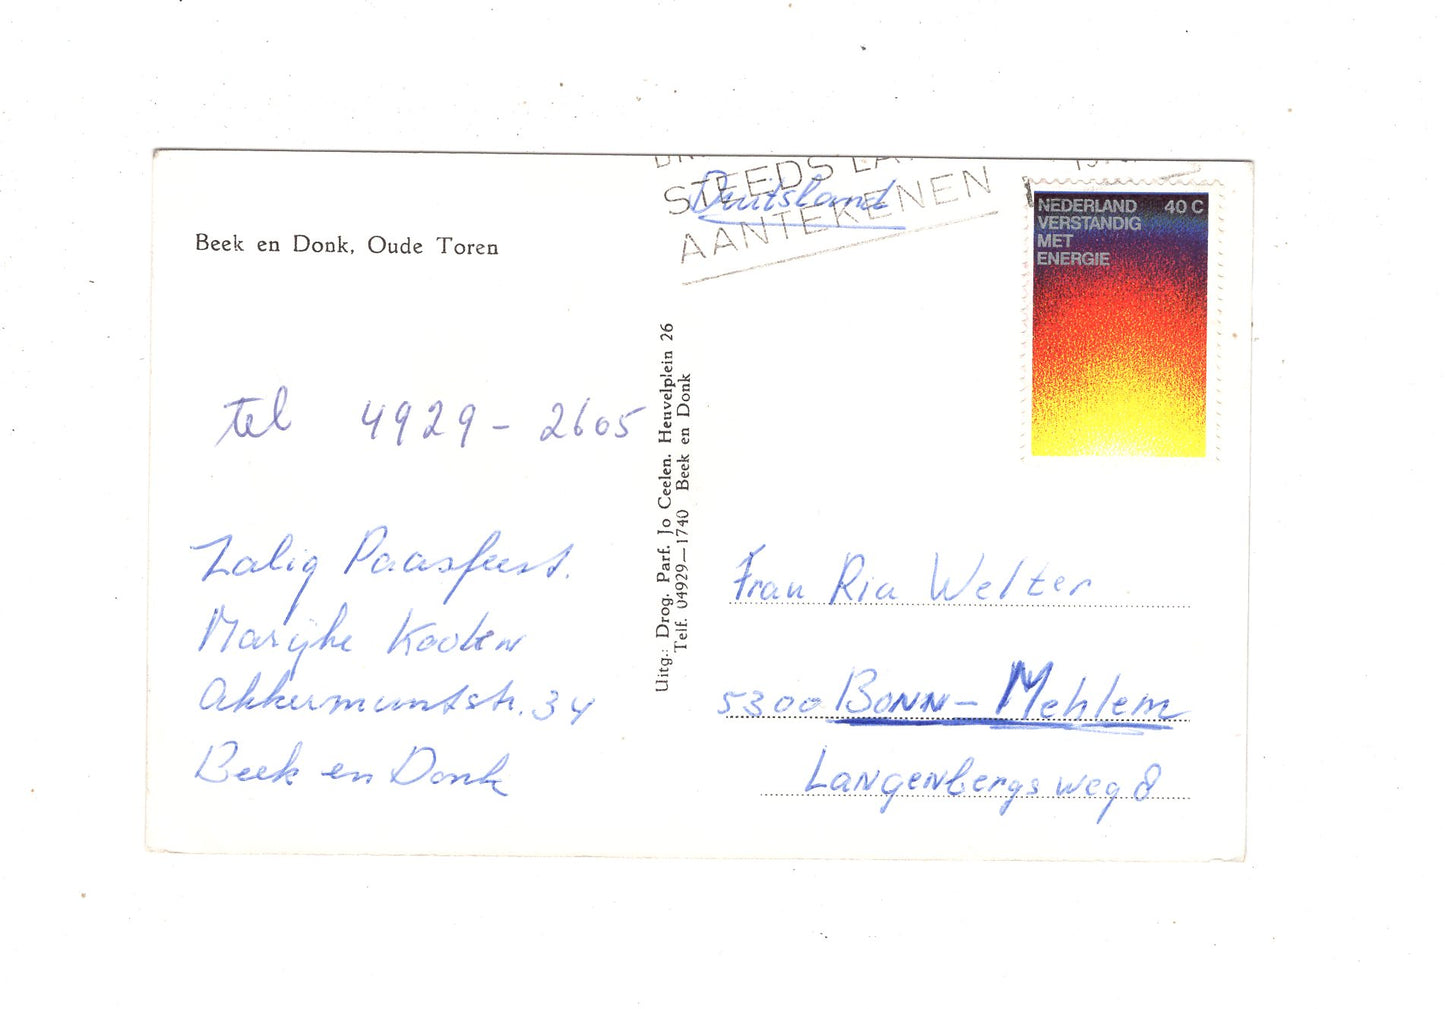 STEEDS
AANTEKENEN
Duitsland
NEDERLAND 40 C
VERSTANDIG
MET
ENERGIE
Beek en Donk, Oude Toren
tel 4929 - 2605
Zalig Paasfeest.
Marijke Kooten
Akkermuntstr. 34
Beek en Donk
Uitg.: Drog. Parf. Jo Ceelen. Heuvelplein 26
Telf. 04929—1740 Beek en Donk
Frau Ria Welter
5300 BONN - Mehlem
Langenbergsweg 8